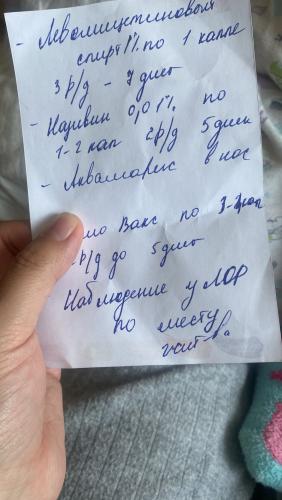 - Левомицетиновый
спирт 1% по 1 капле
3 р/д - 7 дней
- Називин 0,01% по
1-2 кап 2р/д 5 дней
- Аквамарис в нос
Вакс по
р/д до 5 дней
Наблюдение у ЛОР
по месту
жит-ва